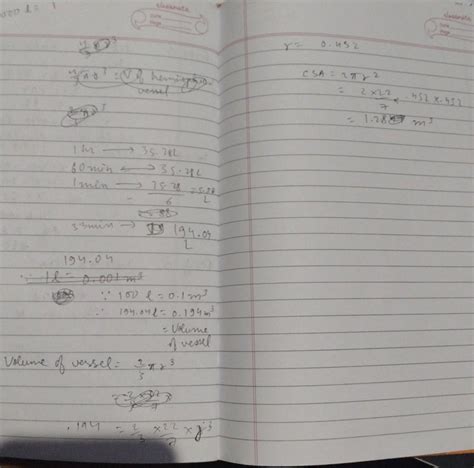 1000 l = 1
classmate
= V of hemisp
vessel
1 hr → 35.28L
60 min ↔ 35.28L
1 min → 35.28 = 5.88
6 L
33 min → 194.04
L
194.04
∵ 1l = 0.001 m³
∵ 100 l = 0.1 m³
∴ 194.04 l = 0.194 m³
= Volume
of vessel
Volume of vessel = 2/3 π r³
.194 = 2/3 × 22/7 × r³
classmate
r = 0.452
CSA = 2πr²
= 2×22/7 × .452×.452
= 1.28 m³